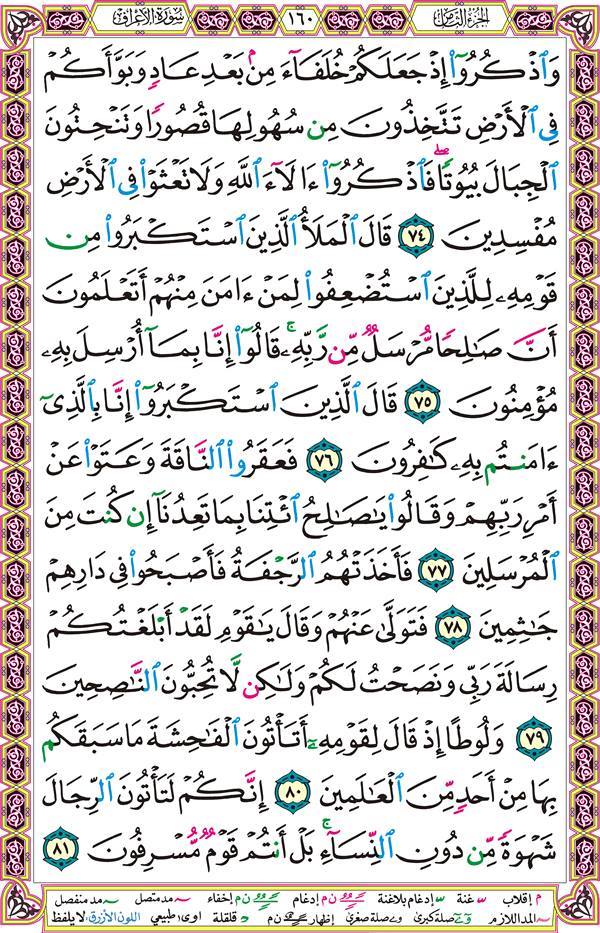 الجزء الثامن
١٦٠
سورة الأعراف
وَٱذۡكُرُوٓاْ إِذۡ جَعَلَكُمۡ خُلَفَآءَ مِنۢ بَعۡدِ عَادٖ وَبَوَّأَكُمۡ
فِي ٱلۡأَرۡضِ تَتَّخِذُونَ مِن سُهُولِهَا قُصُورٗا وَتَنۡحِتُونَ
ٱلۡجِبَالَ بُيُوتٗاۖ فَٱذۡكُرُوٓاْ ءَالَآءَ ٱللَّهِ وَلَا تَعۡثَوۡاْ فِي ٱلۡأَرۡضِ
مُفۡسِدِينَ ٧٤ قَالَ ٱلۡمَلَأُ ٱلَّذِينَ ٱسۡتَكۡبَرُواْ مِن
قَوۡمِهِۦ لِلَّذِينَ ٱسۡتُضۡعِفُواْ لِمَنۡ ءَامَنَ مِنۡهُمۡ أَتَعۡلَمُونَ
أَنَّ صَٰلِحٗا مُّرۡسَلٞ مِّن رَّبِّهِۦۚ قَالُوٓاْ إِنَّا بِمَآ أُرۡسِلَ بِهِۦ
مُؤۡمِنُونَ ٧٥ قَالَ ٱلَّذِينَ ٱسۡتَكۡبَرُوٓاْ إِنَّا بِٱلَّذِيٓ
ءَامَنتُم بِهِۦ كَٰفِرُونَ ٧٦ فَعَقَرُواْ ٱلنَّاقَةَ وَعَتَوۡاْ عَنۡ
أَمۡرِ رَبِّهِمۡ وَقَالُواْ يَٰصَٰلِحُ ٱئۡتِنَا بِمَا تَعِدُنَآ إِن كُنتَ مِنَ
ٱلۡمُرۡسَلِينَ ٧٧ فَأَخَذَتۡهُمُ ٱلرَّجۡفَةُ فَأَصۡبَحُواْ فِي دَارِهِمۡ
جَٰثِمِينَ ٧٨ فَتَوَلَّىٰ عَنۡهُمۡ وَقَالَ يَٰقَوۡمِ لَقَدۡ أَبۡلَغۡتُكُمۡ
رِسَالَةَ رَبِّي وَنَصَحۡتُ لَكُمۡ وَلَٰكِن لَّا تُحِبُّونَ ٱلنَّٰصِحِينَ
٧٩ وَلُوطًا إِذۡ قَالَ لِقَوۡمِهِۦٓ أَتَأۡتُونَ ٱلۡفَٰحِشَةَ مَا سَبَقَكُم
بِهَا مِنۡ أَحَدٖ مِّنَ ٱلۡعَٰلَمِينَ ٨٠ إِنَّكُمۡ لَتَأۡتُونَ ٱلرِّجَالَ
شَهۡوَةٗ مِّن دُونِ ٱلنِّسَآءِۚ بَلۡ أَنتُمۡ قَوۡمٞ مُّسۡرِفُونَ ٨١
م إقلاب غنة إدغام بلاغنة ن م إدغام ن م إخفاء مد متصل مد منفصل
المد اللازم صلة كبرى و ے صلة صغرى إظهار ن م قلقلة اوى طبيعي اللون الأزرق لا يلفظ